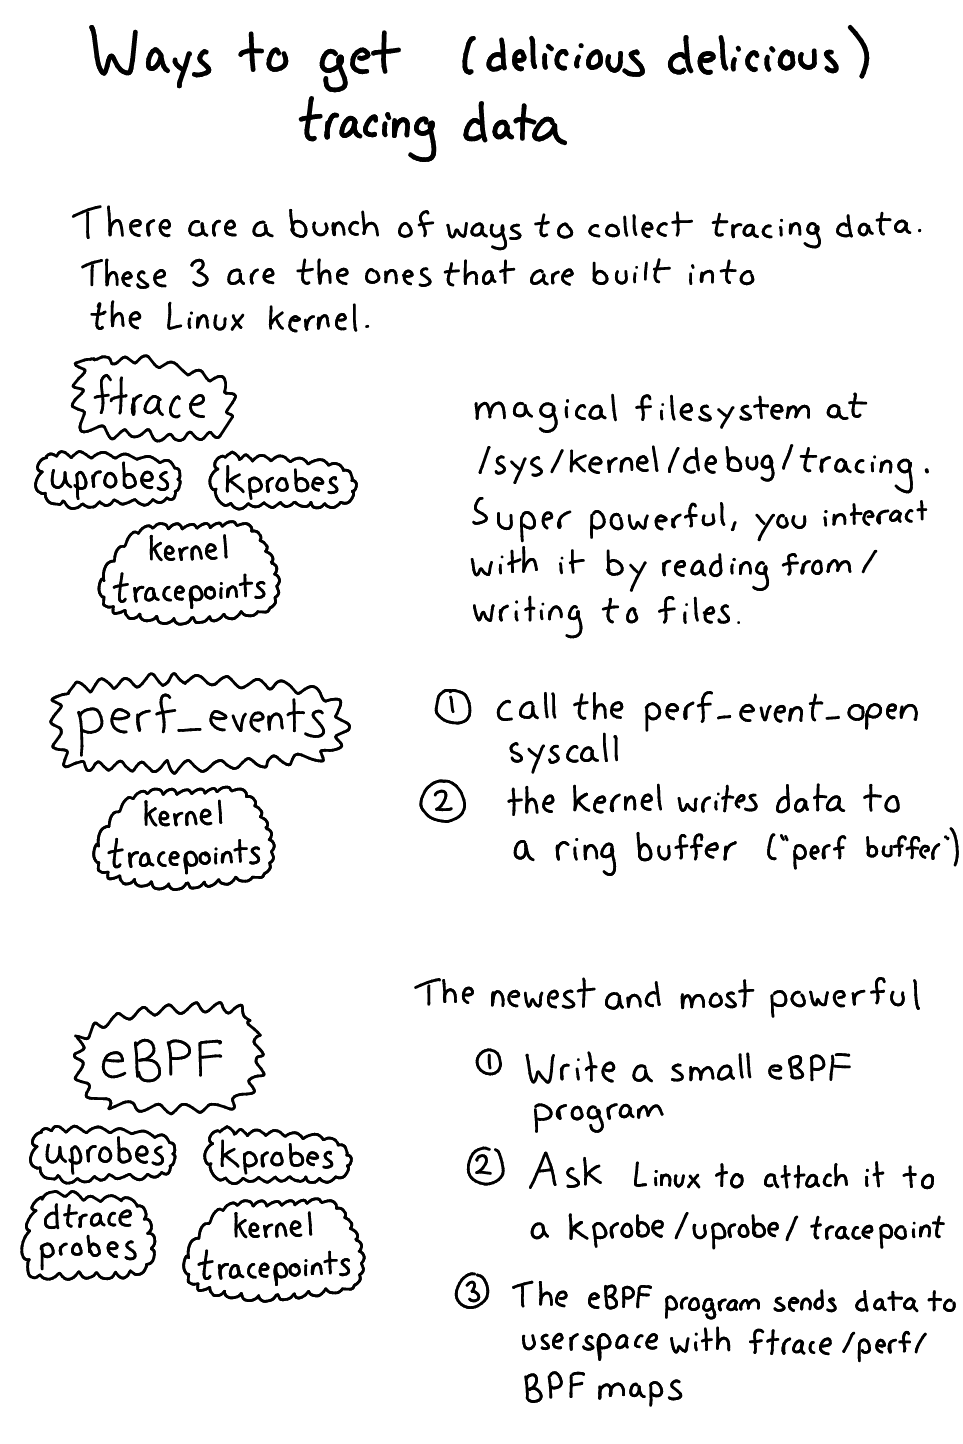 Ways to get (delicious delicious)
tracing data
There are a bunch of ways to collect tracing data.
These 3 are the ones that are built into
the Linux kernel.
ftrace
uprobes kprobes
kernel
tracepoints
magical filesystem at
/sys/kernel/debug/tracing.
Super powerful, you interact
with it by reading from/
writing to files.
perf_events
kernel
tracepoints
① call the perf_event_open
syscall
② the kernel writes data to
a ring buffer ("perf buffer")
eBPF
uprobes kprobes
dtrace
probes
kernel
tracepoints
The newest and most powerful
① Write a small eBPF
program
② Ask Linux to attach it to
a kprobe/uprobe/tracepoint
③ The eBPF program sends data to
userspace with ftrace/perf/
BPF maps